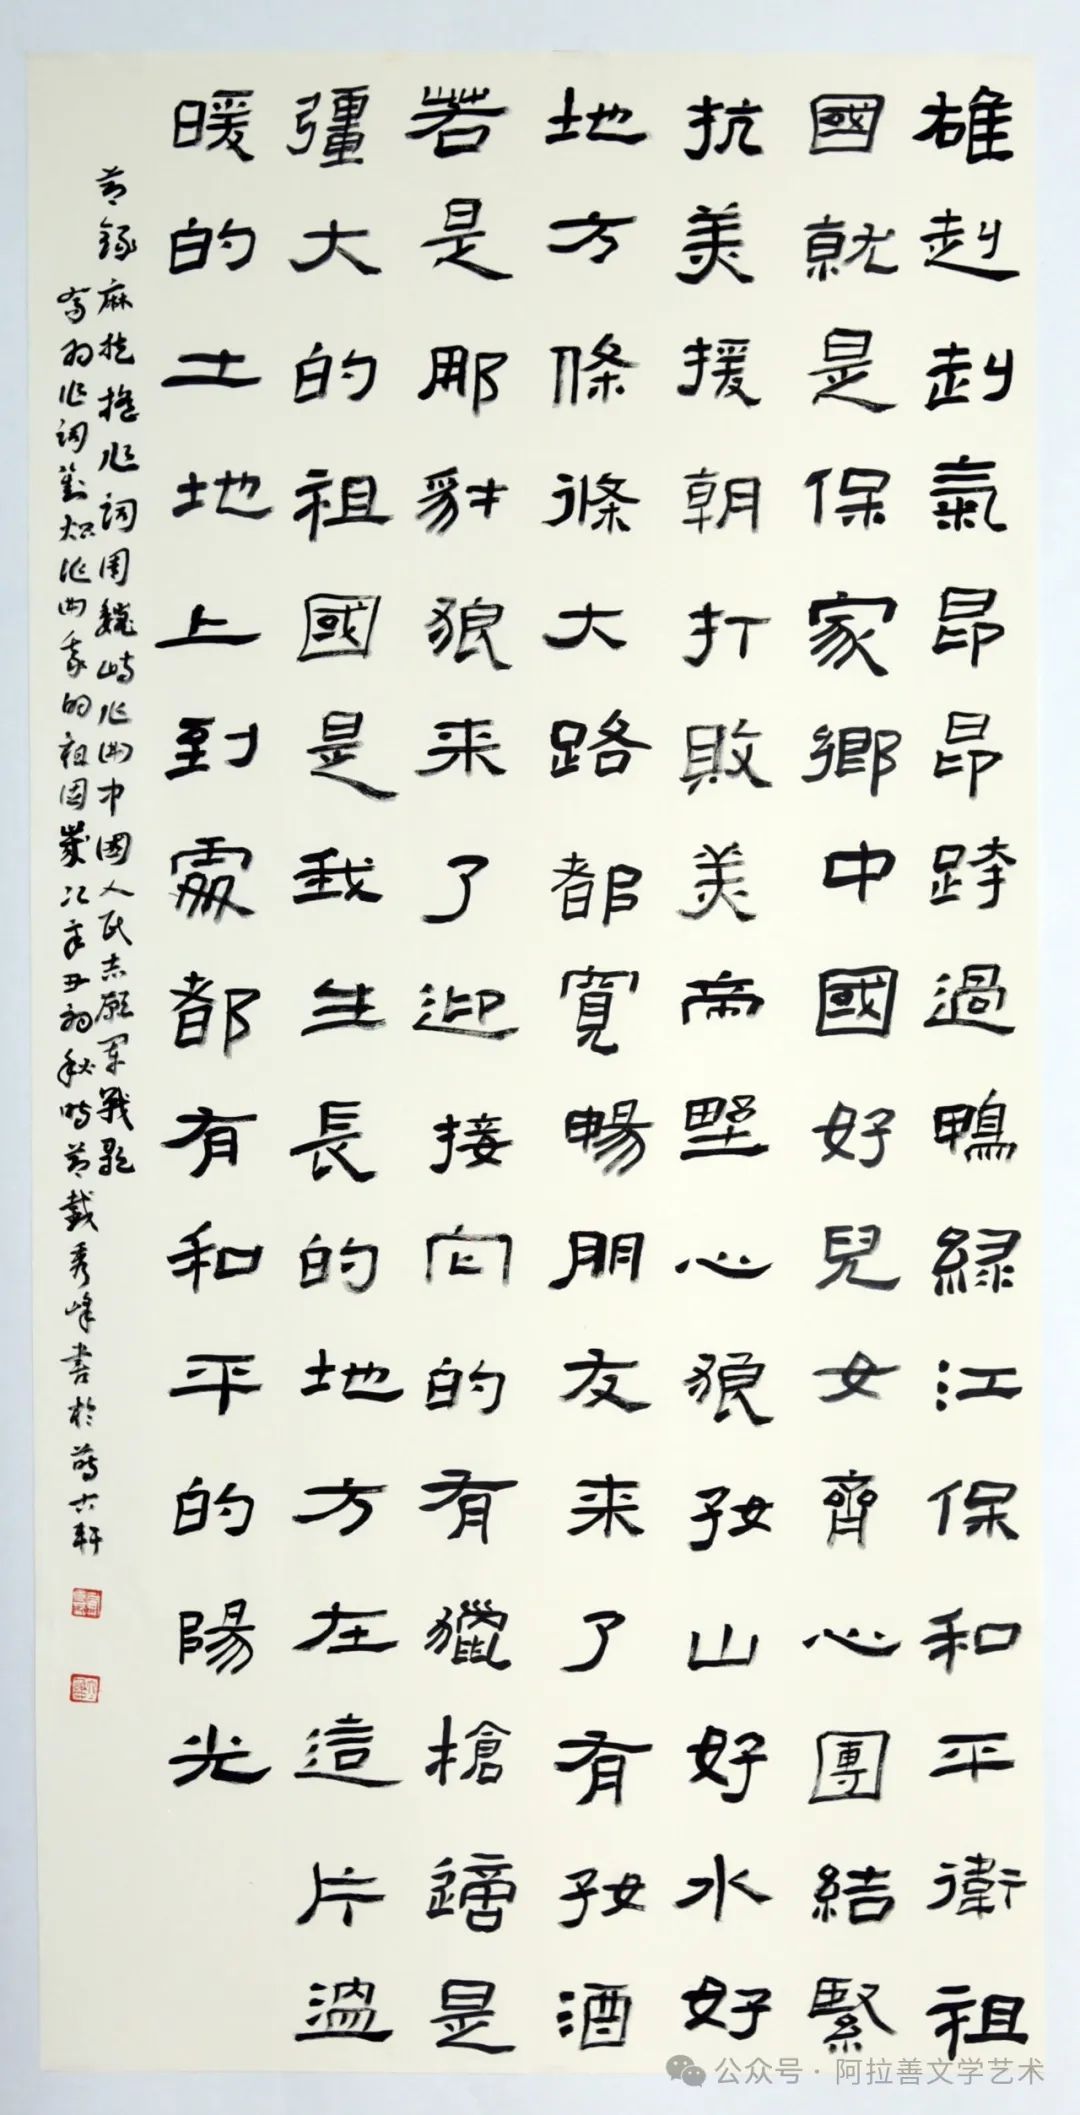 雄赳赳氣昂昂跨過鴨綠江保和平衛祖
國就是保家鄉中國好兒女齊心團結緊
抗美援朝打敗美帝野心狼好山好水好
地方條條大路都寬暢朋友来了有好酒
若是那豺狼来了迎接它的有獵槍這是
彊大的祖國是我生長的地方在這片溫
暖的土地上到處都有和平的陽光
節錄麻扶搖作詞周巍峙作曲中國人民志願軍戰歌
喬羽作詞劉熾作曲我的祖國歲次辛丑初秋時節戴秀峰書於軒
公众号·阿拉善文学艺术